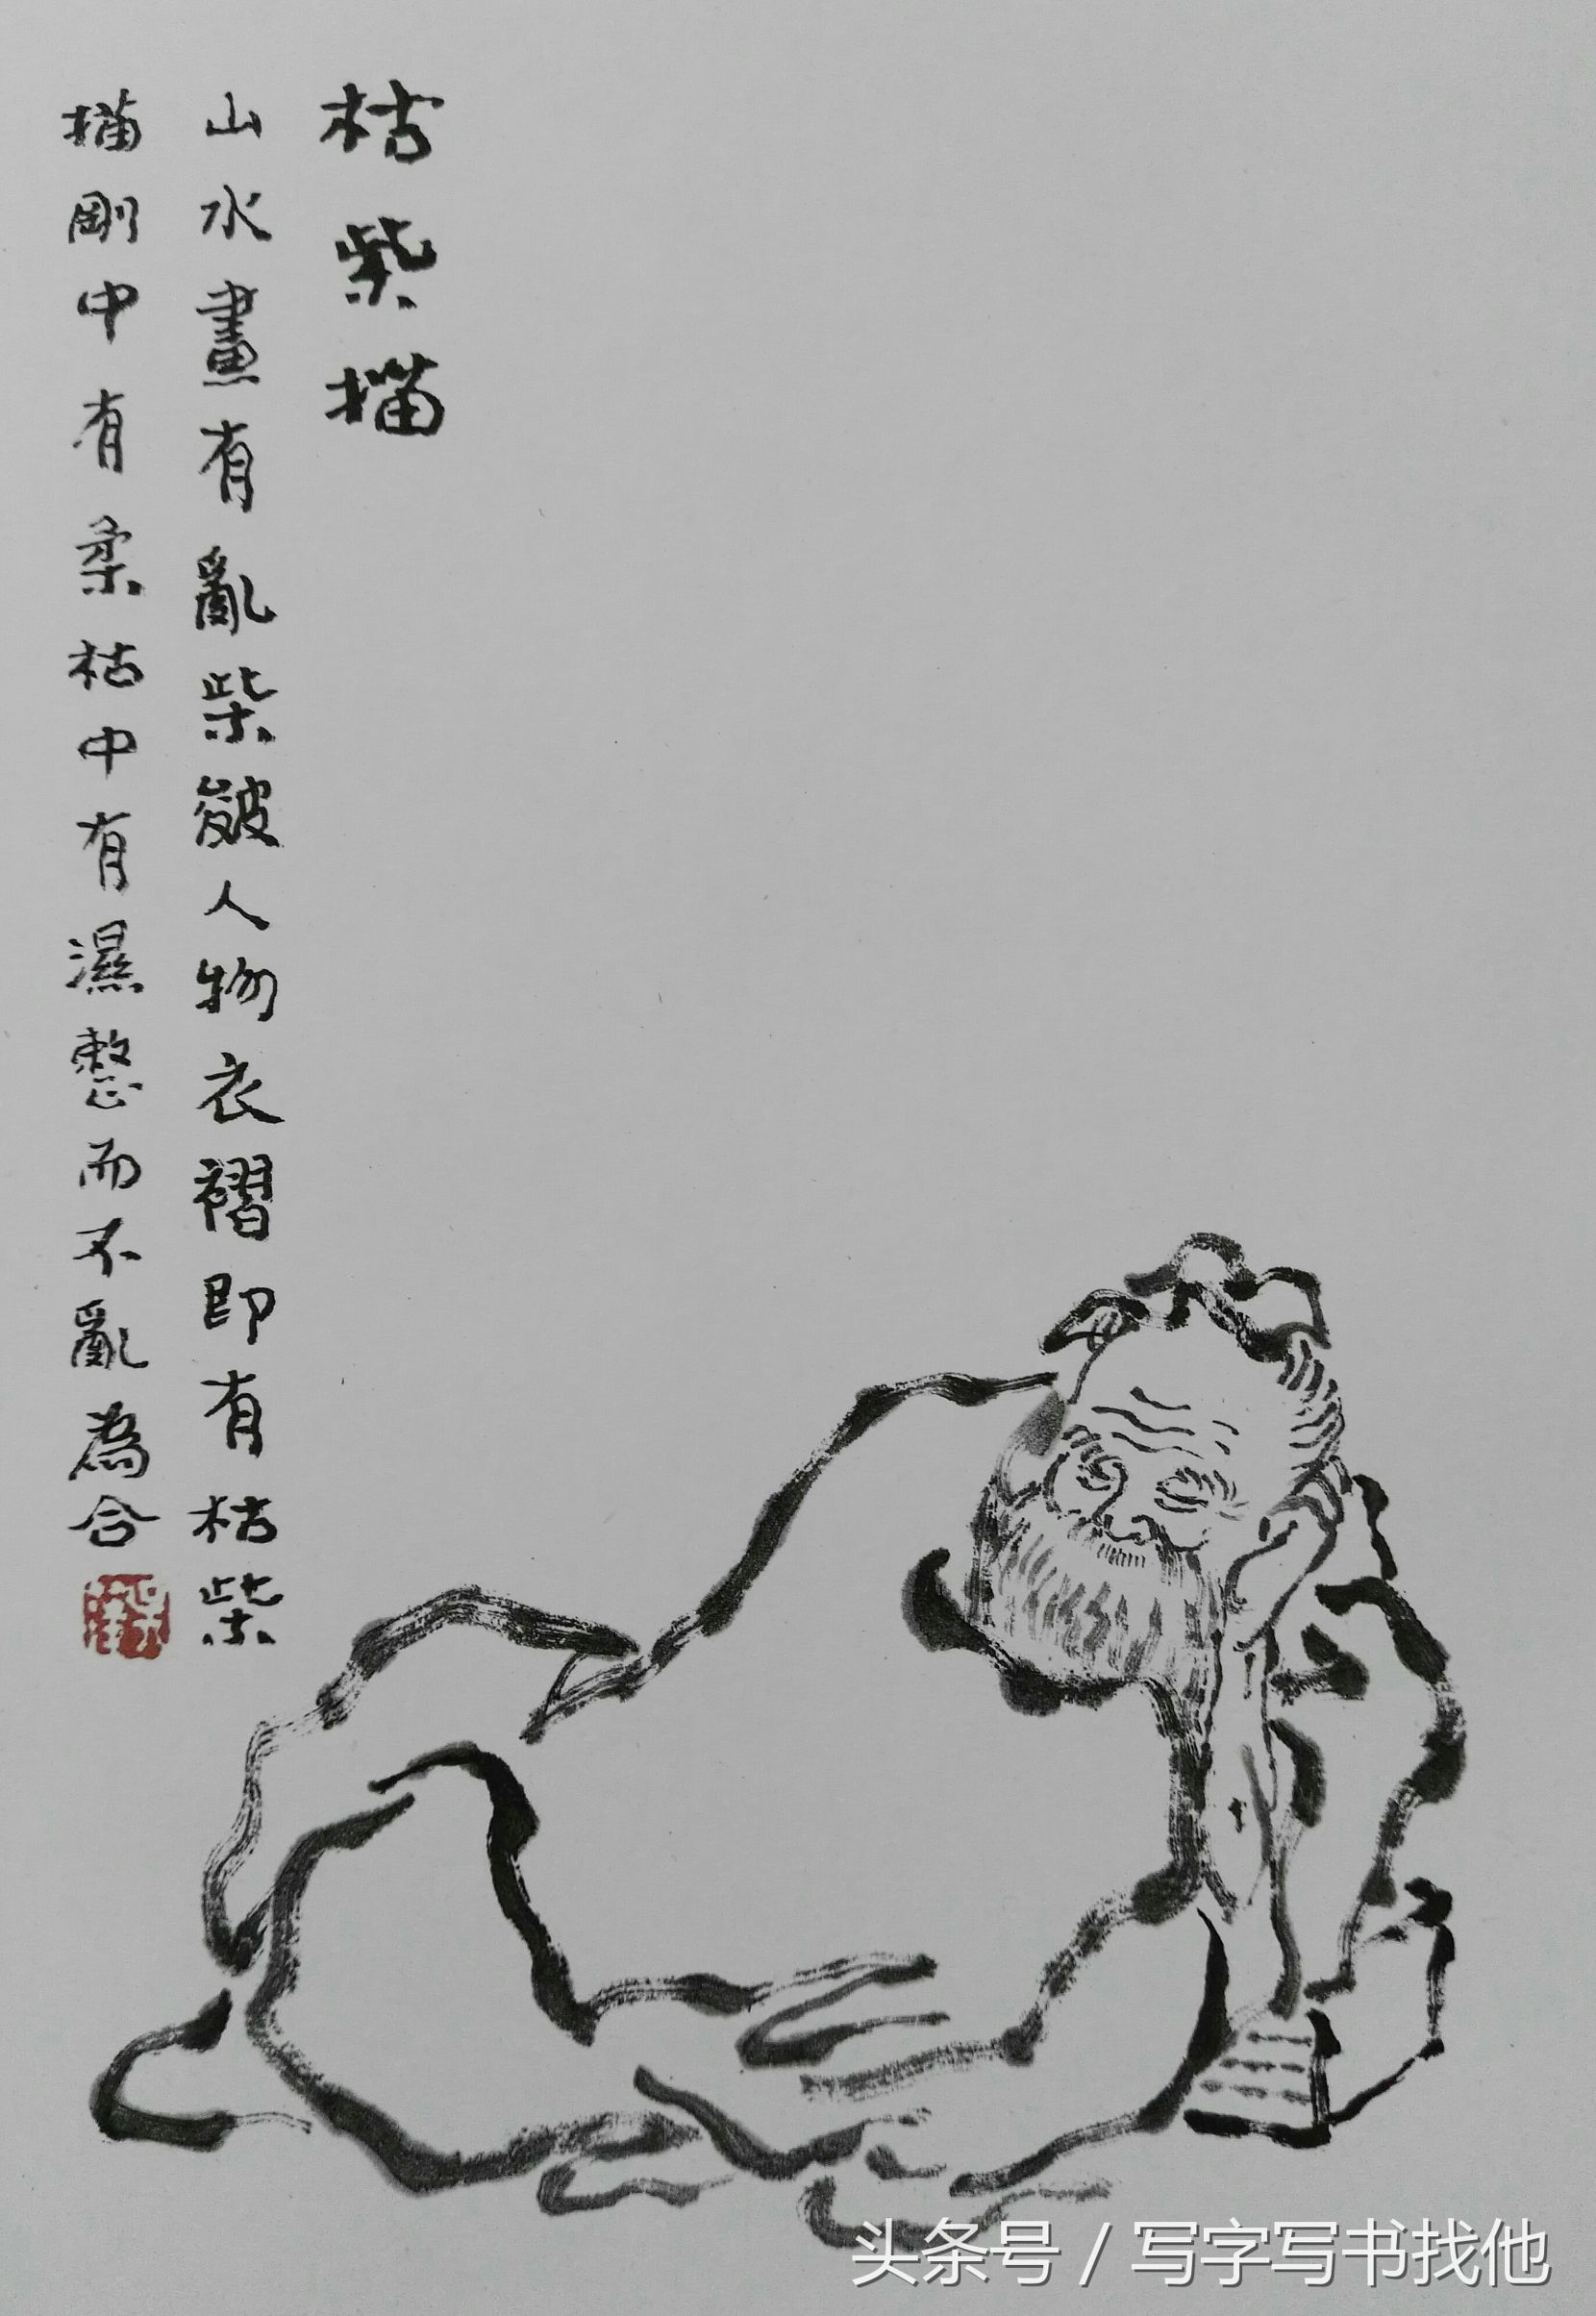 枯柴描
山水畫有亂柴皴人物衣褶即有枯柴
描剛中有柔枯中有濕整而不亂為合
头条号 / 写字写书找他